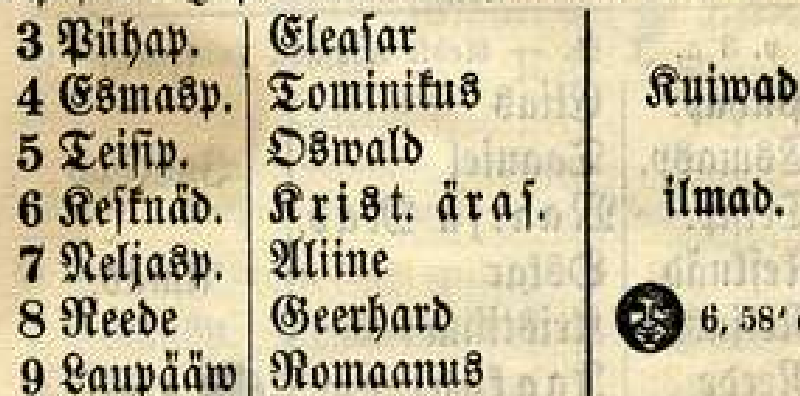 3 Pühap. Eleasar
4 Esmasp. Tominikus Kuiwad
5 Teisip. Oswald
6 Kesknäd. Krist. äras. ilmad.
7 Neljasp. Aliine
8 Reede Geerhard 6, 58'
9 Laupääw Romaanus